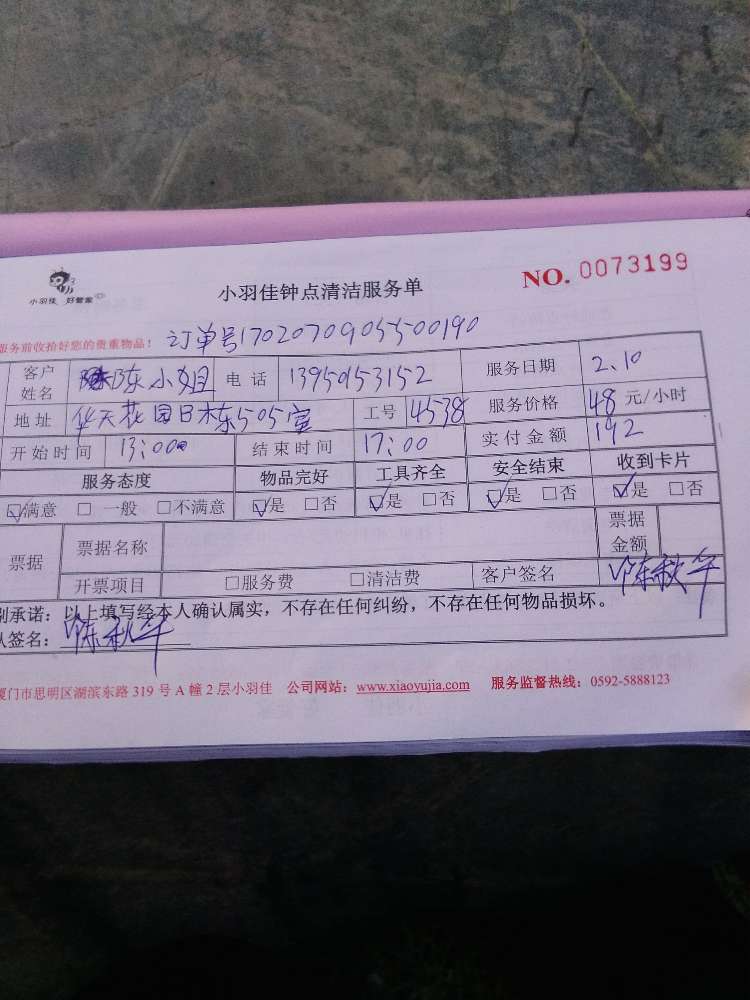 小羽佳 好管家
小羽佳钟点清洁服务单
NO. 0073199
服务前收拾好您的贵重物品！ 订单号17020709055500190
客户姓名 陈小姐 电话 13950153152 服务日期 2.10
地址 华天花园B栋505室 工号 4538 服务价格 48 元/小时
开始时间 13:00 结束时间 17:00 实付金额 192
服务态度 物品完好 工具齐全 安全结束 收到卡片
☑满意 □ 一般 □不满意 ☑是 □否 ☑是 □否 ☑是 □否 ☑是 □否
票据 票据名称 票据金额
开票项目 □服务费 □清洁费 客户签名 陈秋华
别承诺：以上填写经本人确认属实，不存在任何纠纷，不存在任何物品损坏。
人签名：陈秋华
厦门市思明区湖滨东路 319 号 A 幢 2 层小羽佳 公司网站：www.xiaoyujia.com 服务监督热线：0592-5888123